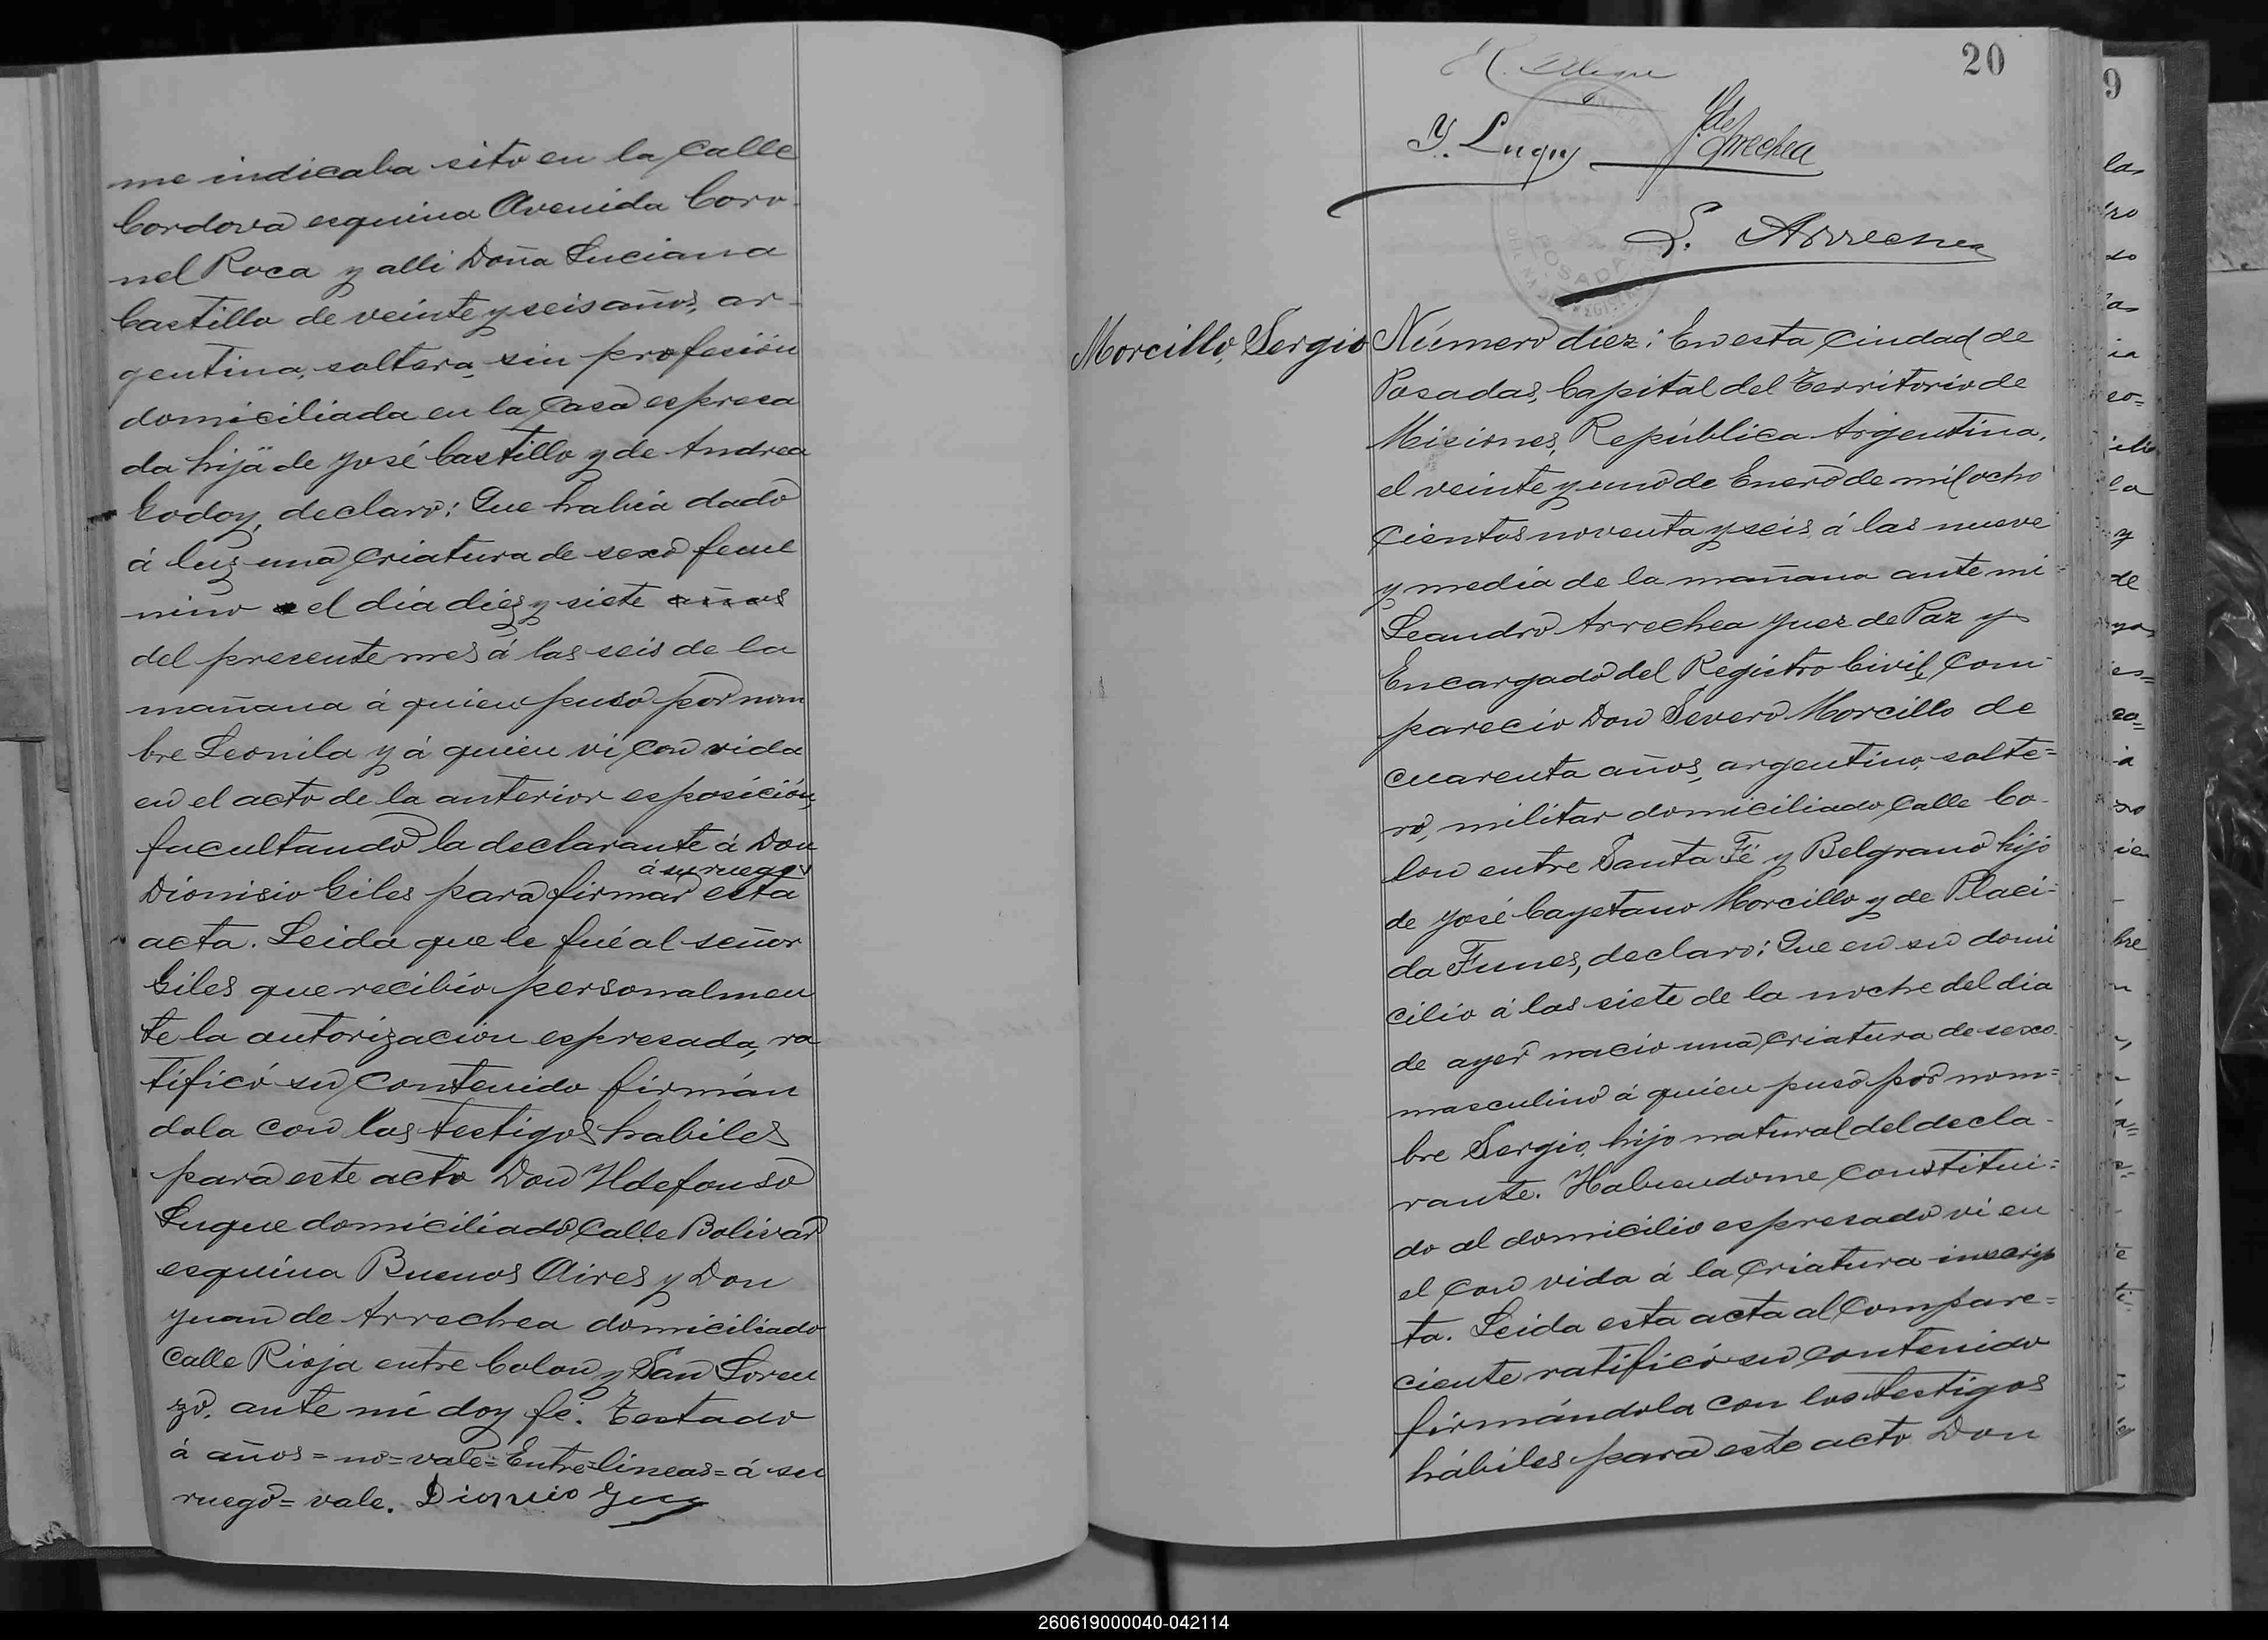 me indicaba sito en la Calle
Cordova esquina Avenida Coro-
nel Roca y alli Doña Luciana
Castillo de veinte y seis años, ar-
gentina, soltera, sin profesión
domiciliada en la Casa espresa
da hija de José Castillo y de Andrea
Godoy, declaro: Que habia dado
á luz una Criatura de sexo feme
nino el dia diez y siete años
del presente mes á las seis de la
mañana á quien puso por nom
bre Leonila y á quien vi con vida
en el acto de la anterior esposición,
facultando la declarante á Don
á su ruego
Dionisio Giles para firmar esta
acta. Leida que le fué al señor
Giles que recibio personalmen
te la autorizacion espresada, ra
tificó su Contenido firmán
dola con los testigos habiles
para este acto Don Ildefonso
Luque domiciliado Calle Bolivar
esquina Buenos Aires y Don
Juan de Arrechea domiciliado
Calle Rioja entre Colon y San Loren
zo, ante mi doy fé. Testado
á años = no = vale = Entre = lineas = á su
ruego = vale. Dionisio
20
Y. Luque
J. de Arrechea
L. Arrechea
POSADAS
Morcillo, Sergio
Número diez: En esta Ciudad de
Posadas, Capital del Territorio de
Misiones, República Argentina,
el veinte y uno de Enero de mil ocho
Cientos noventa y seis á las nueve
y media de la mañana ante mi
Leandro Arrechea Juez de Paz y
Encargado del Registro Civil, Com-
parecio Don Severo Morcillo de
cuarenta años, argentino, solte=
ro, militar domiciliado Calle Co-
lon entre Santa Fé y Belgrano hijo
de José Cayetano Morcillo y de Placi-
da Funes, declaro: Que en su domi
cilio á las siete de la noche del dia
de ayer nacio una Criatura de sexo
masculino á quien puso por nom=
bre Sergio, hijo natural del decla-
rante. Habiendome Constitui=
do al domicilio espresado vi en
el con vida á la Criatura inscrip
ta. Leida esta acta al Compare=
ciente ratificó su Contenido
firmándola con los testigos
hábiles para este acto Don
9
260619000040-042114